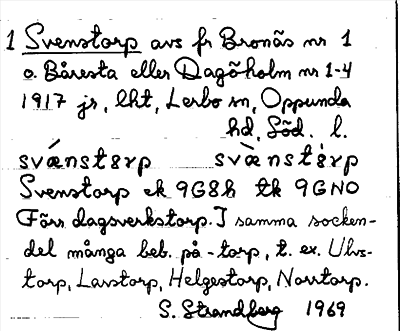 1 Svenstorp avs fr Bronäs nr 1
o. Båresta eller Dagöholm nr 1-4
1917 jr, lht, Lerbo sn, Oppunda
hd, Söd. l.
svánstɞrp svæ̀nstɞ̀rp
Svenstorp ek 9G8h tk 9GNO
(Förr dagsverkstorp.) I samma socken-
del många beb. på -torp, t. ex. Ulvs-
torp, Lavstorp, Helgestorp, Norrtorp.
S. Strandberg 1969